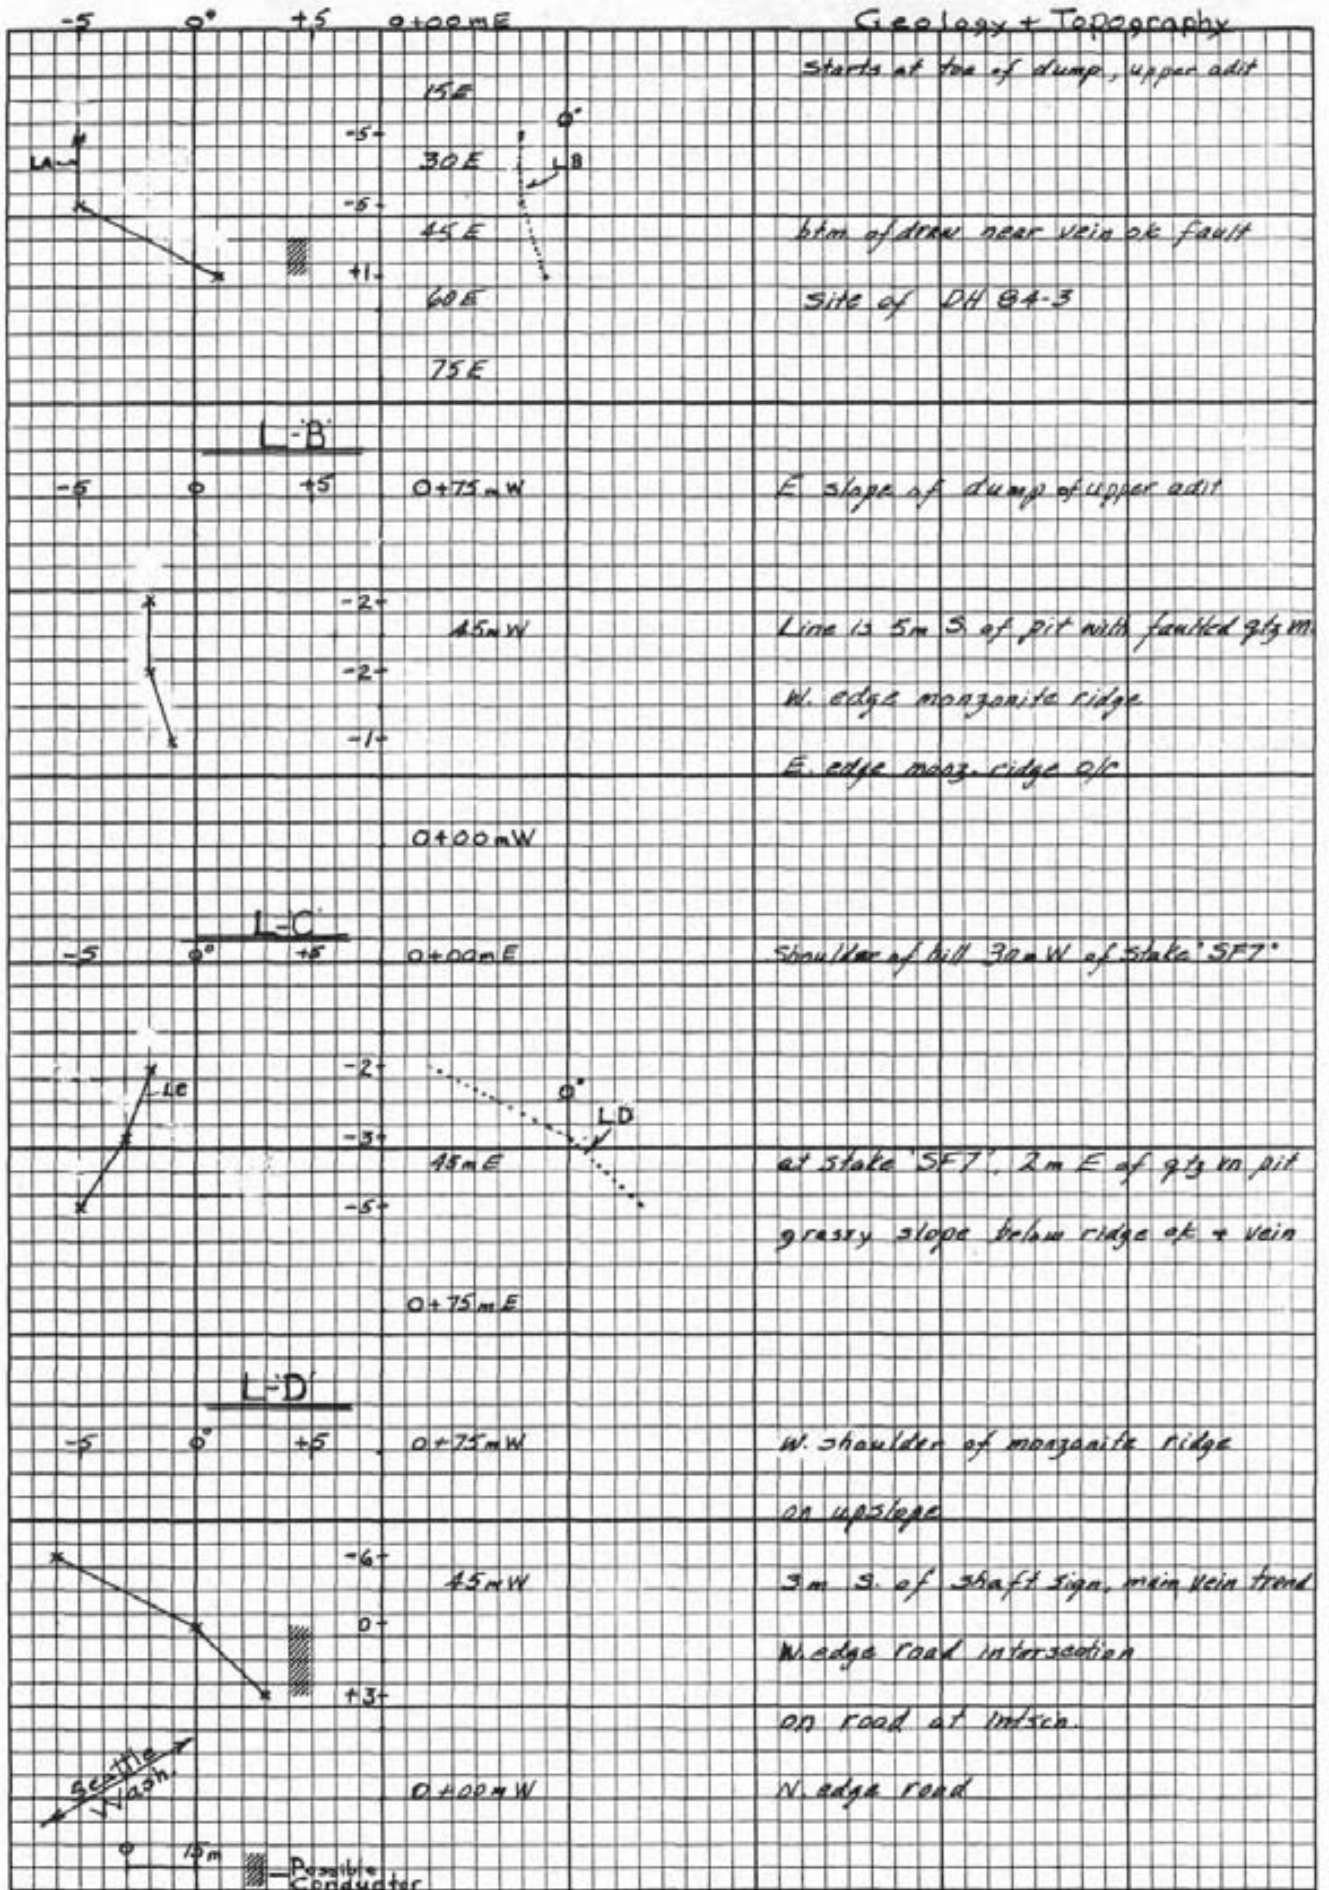 -5 0° +5 0+00mE Geology + Topography
Starts at toe of dump, upper adit
15E
-5 0°
LA 30E LB
-5
45E btm of draw near vein ok fault
+1
60E Site of DH 84-3
75E
L-'B'
-5 0 +5 0+75mW E slope of dump of upper adit
-2
45mW Line is 5m S. of pit with faulted qtz
-2
W. edge monzonite ridge
-1
E. edge monz. ridge o/c
0+00mW
L-'C'
-5 0° +5 0+00mE Shoulder of hill 30m W of Stake 'SF7'
-2
LC 0°
LD
-3
45mE at stake 'SF7', 2m E of qtz vn pit
-5
grassy slope below ridge ok + vein
0+75mE
L-'D'
-5 0° +5 0+75mW W. shoulder of monzonite ridge
on upslope
-6
45mW 3m S. of shaft sign, main vein trend
0
W. edge road intersection
+3
on road at intscn.
Seattle
Wash.
0+00mW N. edge road
0 15m
Possible
Conductor